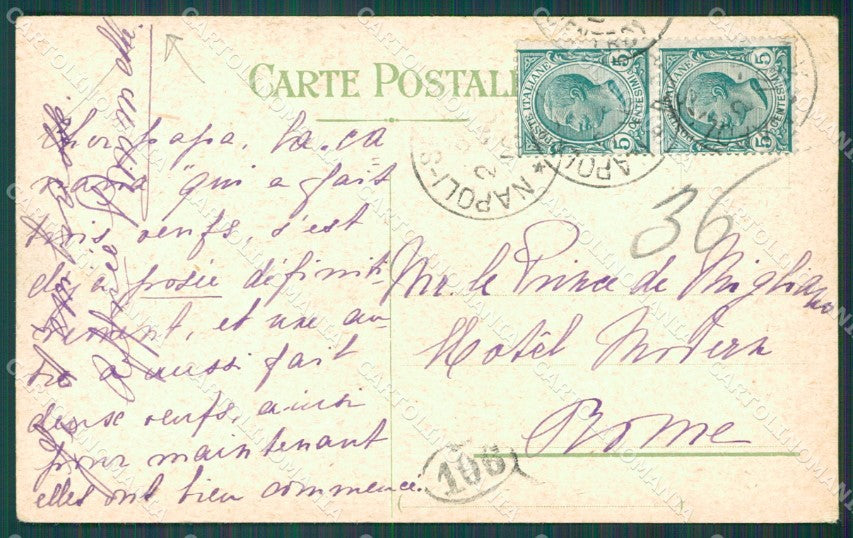 CARTE POSTALE
POSTE ITALIANE
CENTES. 5
POSTE ITALIANE
CENTES. 5
NAPOLI
36
Cher papa, la ca
naria qui a fait
trois oeufs, s'est
déjà posée définiti
vement, et une au
tre a aussi fait
deux oeufs, ainsi
pour maintenant
elles ont bien commencé.
Mr. le Prince de Migliano
Hôtel Modern
Rome
106
CARTOLINOMANIA